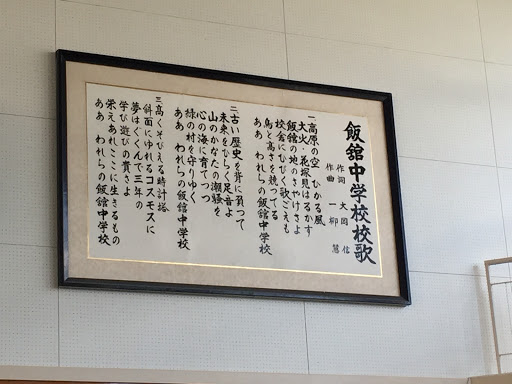 飯舘中学校校歌
作詞 大岡 信
作曲 一柳 慧
一 高原の空 ひかる風
大火・花塚見はるかす
飯舘の地のさやけさよ
校舎になびく歌ごえも
鳥と高さを競ってる
ああ われらの飯舘中学校
二 古い歴史を背に負って
未来をひらく足音よ
山のかなたの潮騒を
心の海に育てつつ
緑の村を守りゆく
ああ われらの飯舘中学校
三 高くそびえる時計塔
斜面にゆれるコスモスに
夢はぐくんで三年の
学び遊びの貴さよ
栄えあれここに生きるもの
ああ われらの飯舘中学校